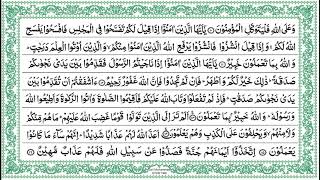 وَعَلَى اللّٰهِ فَلْيَتَوَكَّلِ الْمُؤْمِنُوْنَ ۝ يٰٓاَيُّهَا الَّذِيْنَ اٰمَنُوْٓا اِذَا قِيْلَ لَكُمْ تَفَسَّحُوْا فِى الْمَجٰلِسِ فَافْسَحُوْا يَفْسَحِ
اللّٰهُ لَكُمْ ۚ وَاِذَا قِيْلَ انْشُزُوْا فَانْشُزُوْا يَرْفَعِ اللّٰهُ الَّذِيْنَ اٰمَنُوْا مِنْكُمْ ۙ وَالَّذِيْنَ اُوْتُوا الْعِلْمَ دَرَجٰتٍ ؕ
وَاللّٰهُ بِمَا تَعْمَلُوْنَ خَبِيْرٌ ۝ يٰٓاَيُّهَا الَّذِيْنَ اٰمَنُوْٓا اِذَا نَاجَيْتُمُ الرَّسُوْلَ فَقَدِّمُوْا بَيْنَ يَدَىْ نَجْوٰىكُمْ
صَدَقَةً ؕ ذٰلِكَ خَيْرٌ لَّكُمْ وَاَطْهَرُ ؕ فَاِنْ لَّمْ تَجِدُوْا فَاِنَّ اللّٰهَ غَفُوْرٌ رَّحِيْمٌ ۝ ءَاَشْفَقْتُمْ اَنْ تُقَدِّمُوْا بَيْنَ
يَدَىْ نَجْوٰىكُمْ صَدَقٰتٍ ؕ فَاِذْ لَمْ تَفْعَلُوْا وَتَابَ اللّٰهُ عَلَيْكُمْ فَاَقِيْمُوا الصَّلٰوةَ وَاٰتُوا الزَّكٰوةَ وَاَطِيْعُوا اللّٰهَ
وَرَسُوْلَهٗ ؕ وَاللّٰهُ خَبِيْرٌۢ بِمَا تَعْمَلُوْنَ ۝ اَلَمْ تَرَ اِلَى الَّذِيْنَ تَوَلَّوْا قَوْمًا غَضِبَ اللّٰهُ عَلَيْهِمْ ؕ مَا هُمْ مِّنْكُمْ
وَلَا مِنْهُمْ ۙ وَيَحْلِفُوْنَ عَلَى الْكَذِبِ وَهُمْ يَعْلَمُوْنَ ۝ اَعَدَّ اللّٰهُ لَهُمْ عَذَابًا شَدِيْدًا ؕ اِنَّهُمْ سَآءَ مَا كَانُوْا
يَعْمَلُوْنَ ۝ اِتَّخَذُوْٓا اَيْمَانَهُمْ جُنَّةً فَصَدُّوْا عَنْ سَبِيْلِ اللّٰهِ فَلَهُمْ عَذَابٌ مُّهِيْنٌ ۝